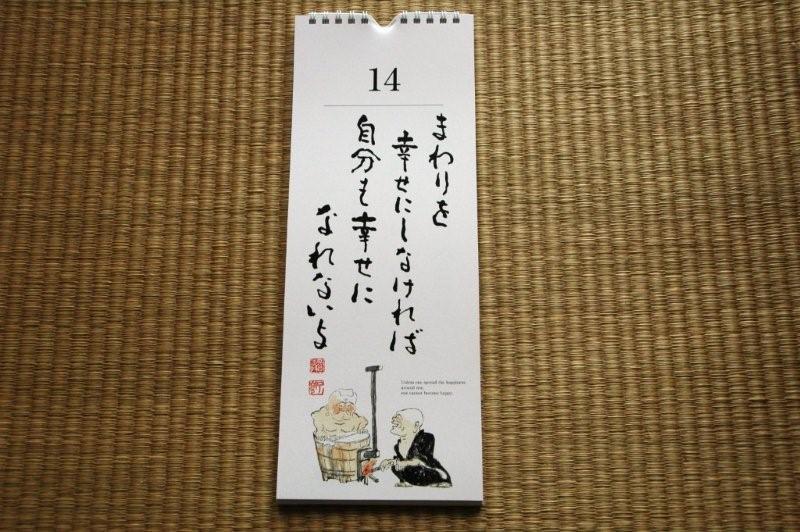 14
まわりを
幸せにしなければ
自分も幸せに
なれないよ
Unless one spread the happiness
around one,
one cannot become happy.